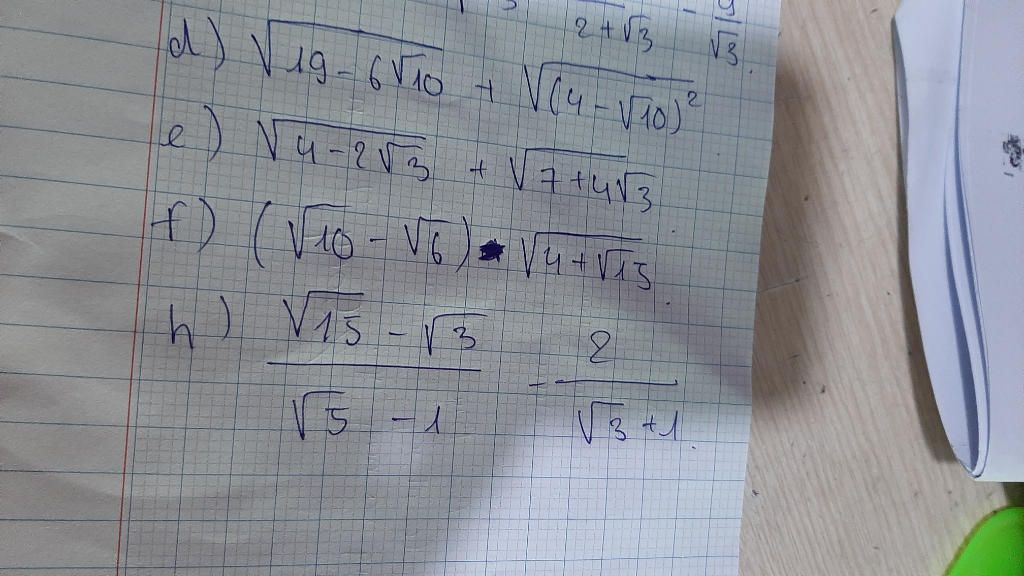 2+√3 - 9/√3.
d) √(19-6√10) + √((4-√10)²)
e) √(4-2√3) + √(7+4√3)
f) (√10-√6)·√(4+√15).
h) (√15-√3)/(√5-1) - 2/(√3+1).